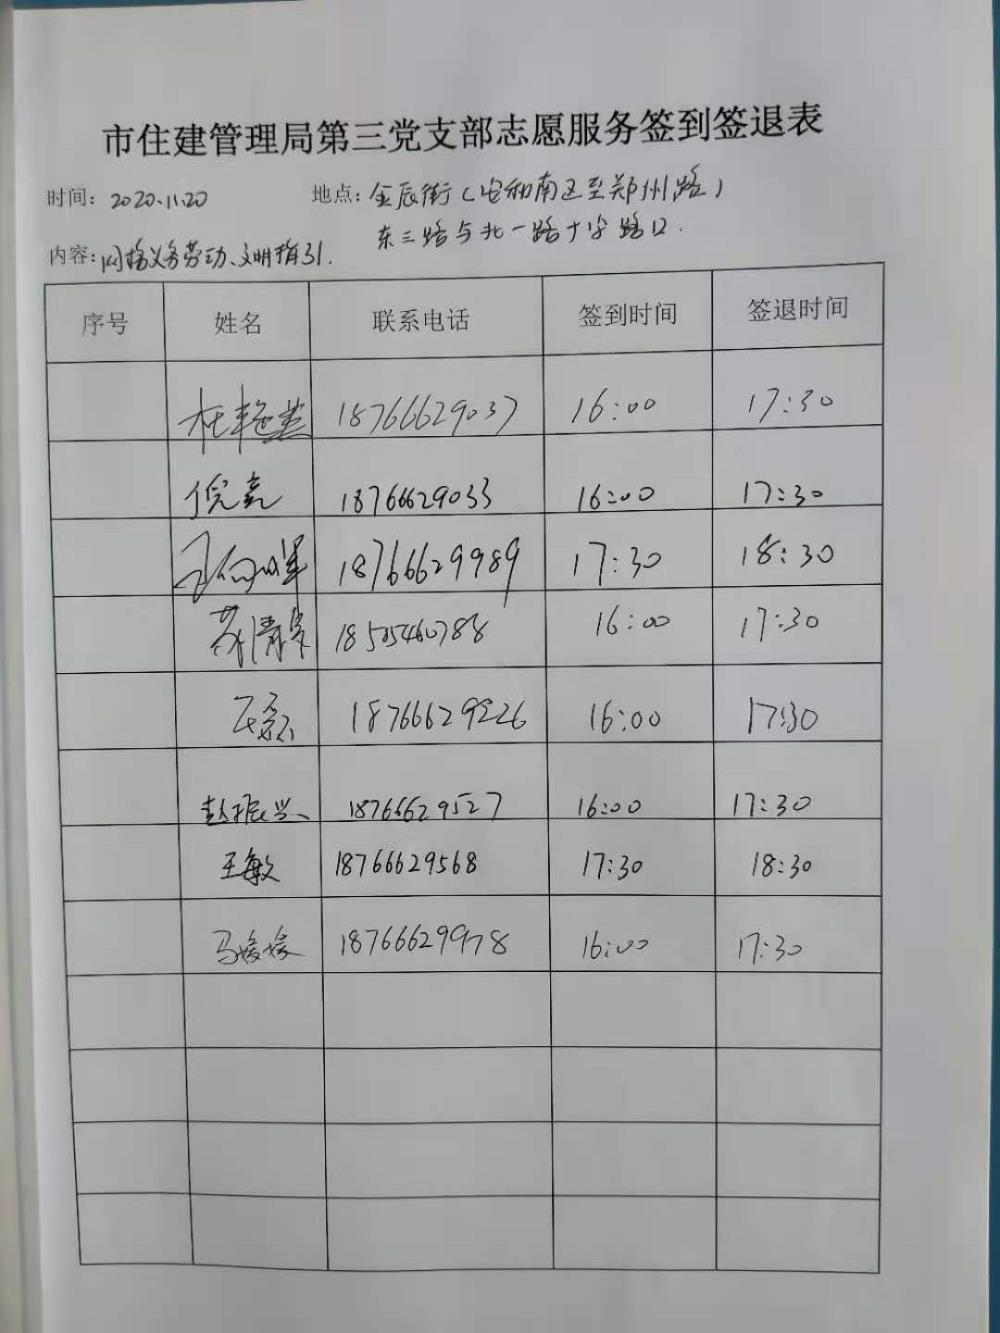 市住建管理局第三党支部志愿服务签到签退表
时间: 2020.11.20 地点: 金辰街(安和南区至郑州路)
东三路与北一路十字路口.
内容: 网格义务劳动、文明指引.
序号 姓名 联系电话 签到时间 签退时间
杜艳燕 18766629037 16:00 17:30
倪嘉 18766629033 16:00 17:30
18766629989 17:30 18:30
16:00 17:30
18766629226 16:00 17:30
赵振兴 18766629527 16:00 17:30
王敏 18766629568 17:30 18:30
马媛媛 18766629978 16:00 17:30